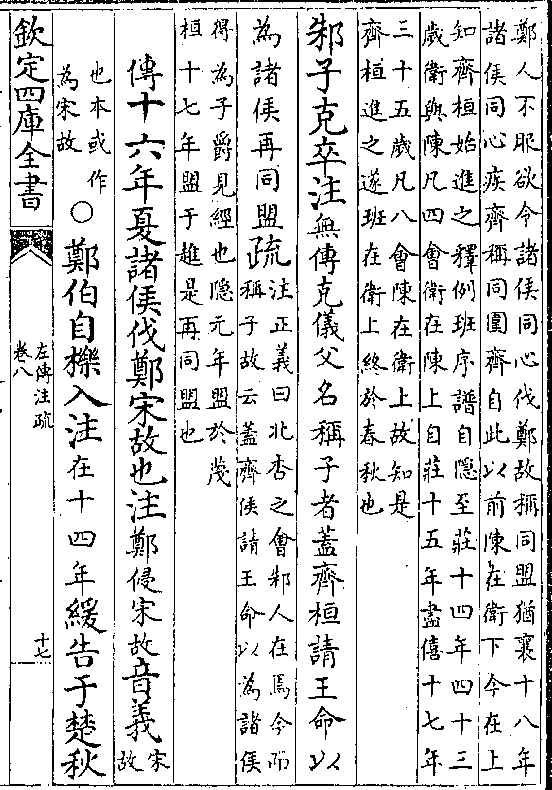 鄭人不服欲令諸侯同心伐鄭故稱同盟猶襄十八年
諸侯同心疾齊稱同圍齊自此以前陳在衛下今在上
知齊桓始進之釋例班序譜自隱至莊十四年四十三
歲衛與陳凡四會衛在陳上自莊十五年盡僖十七年
三十五歲凡八會陳在衛上故知是
齊桓進之遂班在衛上終於春秋也
邾子克卒注無傳克儀父名稱子者蓋齊桓請王命以
為諸侯再同盟疏注正義曰北杏之會邾人在焉今而
稱子故云蓋齊侯請王命以為諸侯
得為子爵見經也隱元年盟於蔑
桓十七年盟于趡是再同盟也
傳十六年夏諸侯伐鄭宋故也注鄭侵宋故音義宋
故
也本或作
為宋故
○鄭伯自櫟入注在十四年緩告于楚秋
欽定四庫全書
左傳注疏
卷八
十七